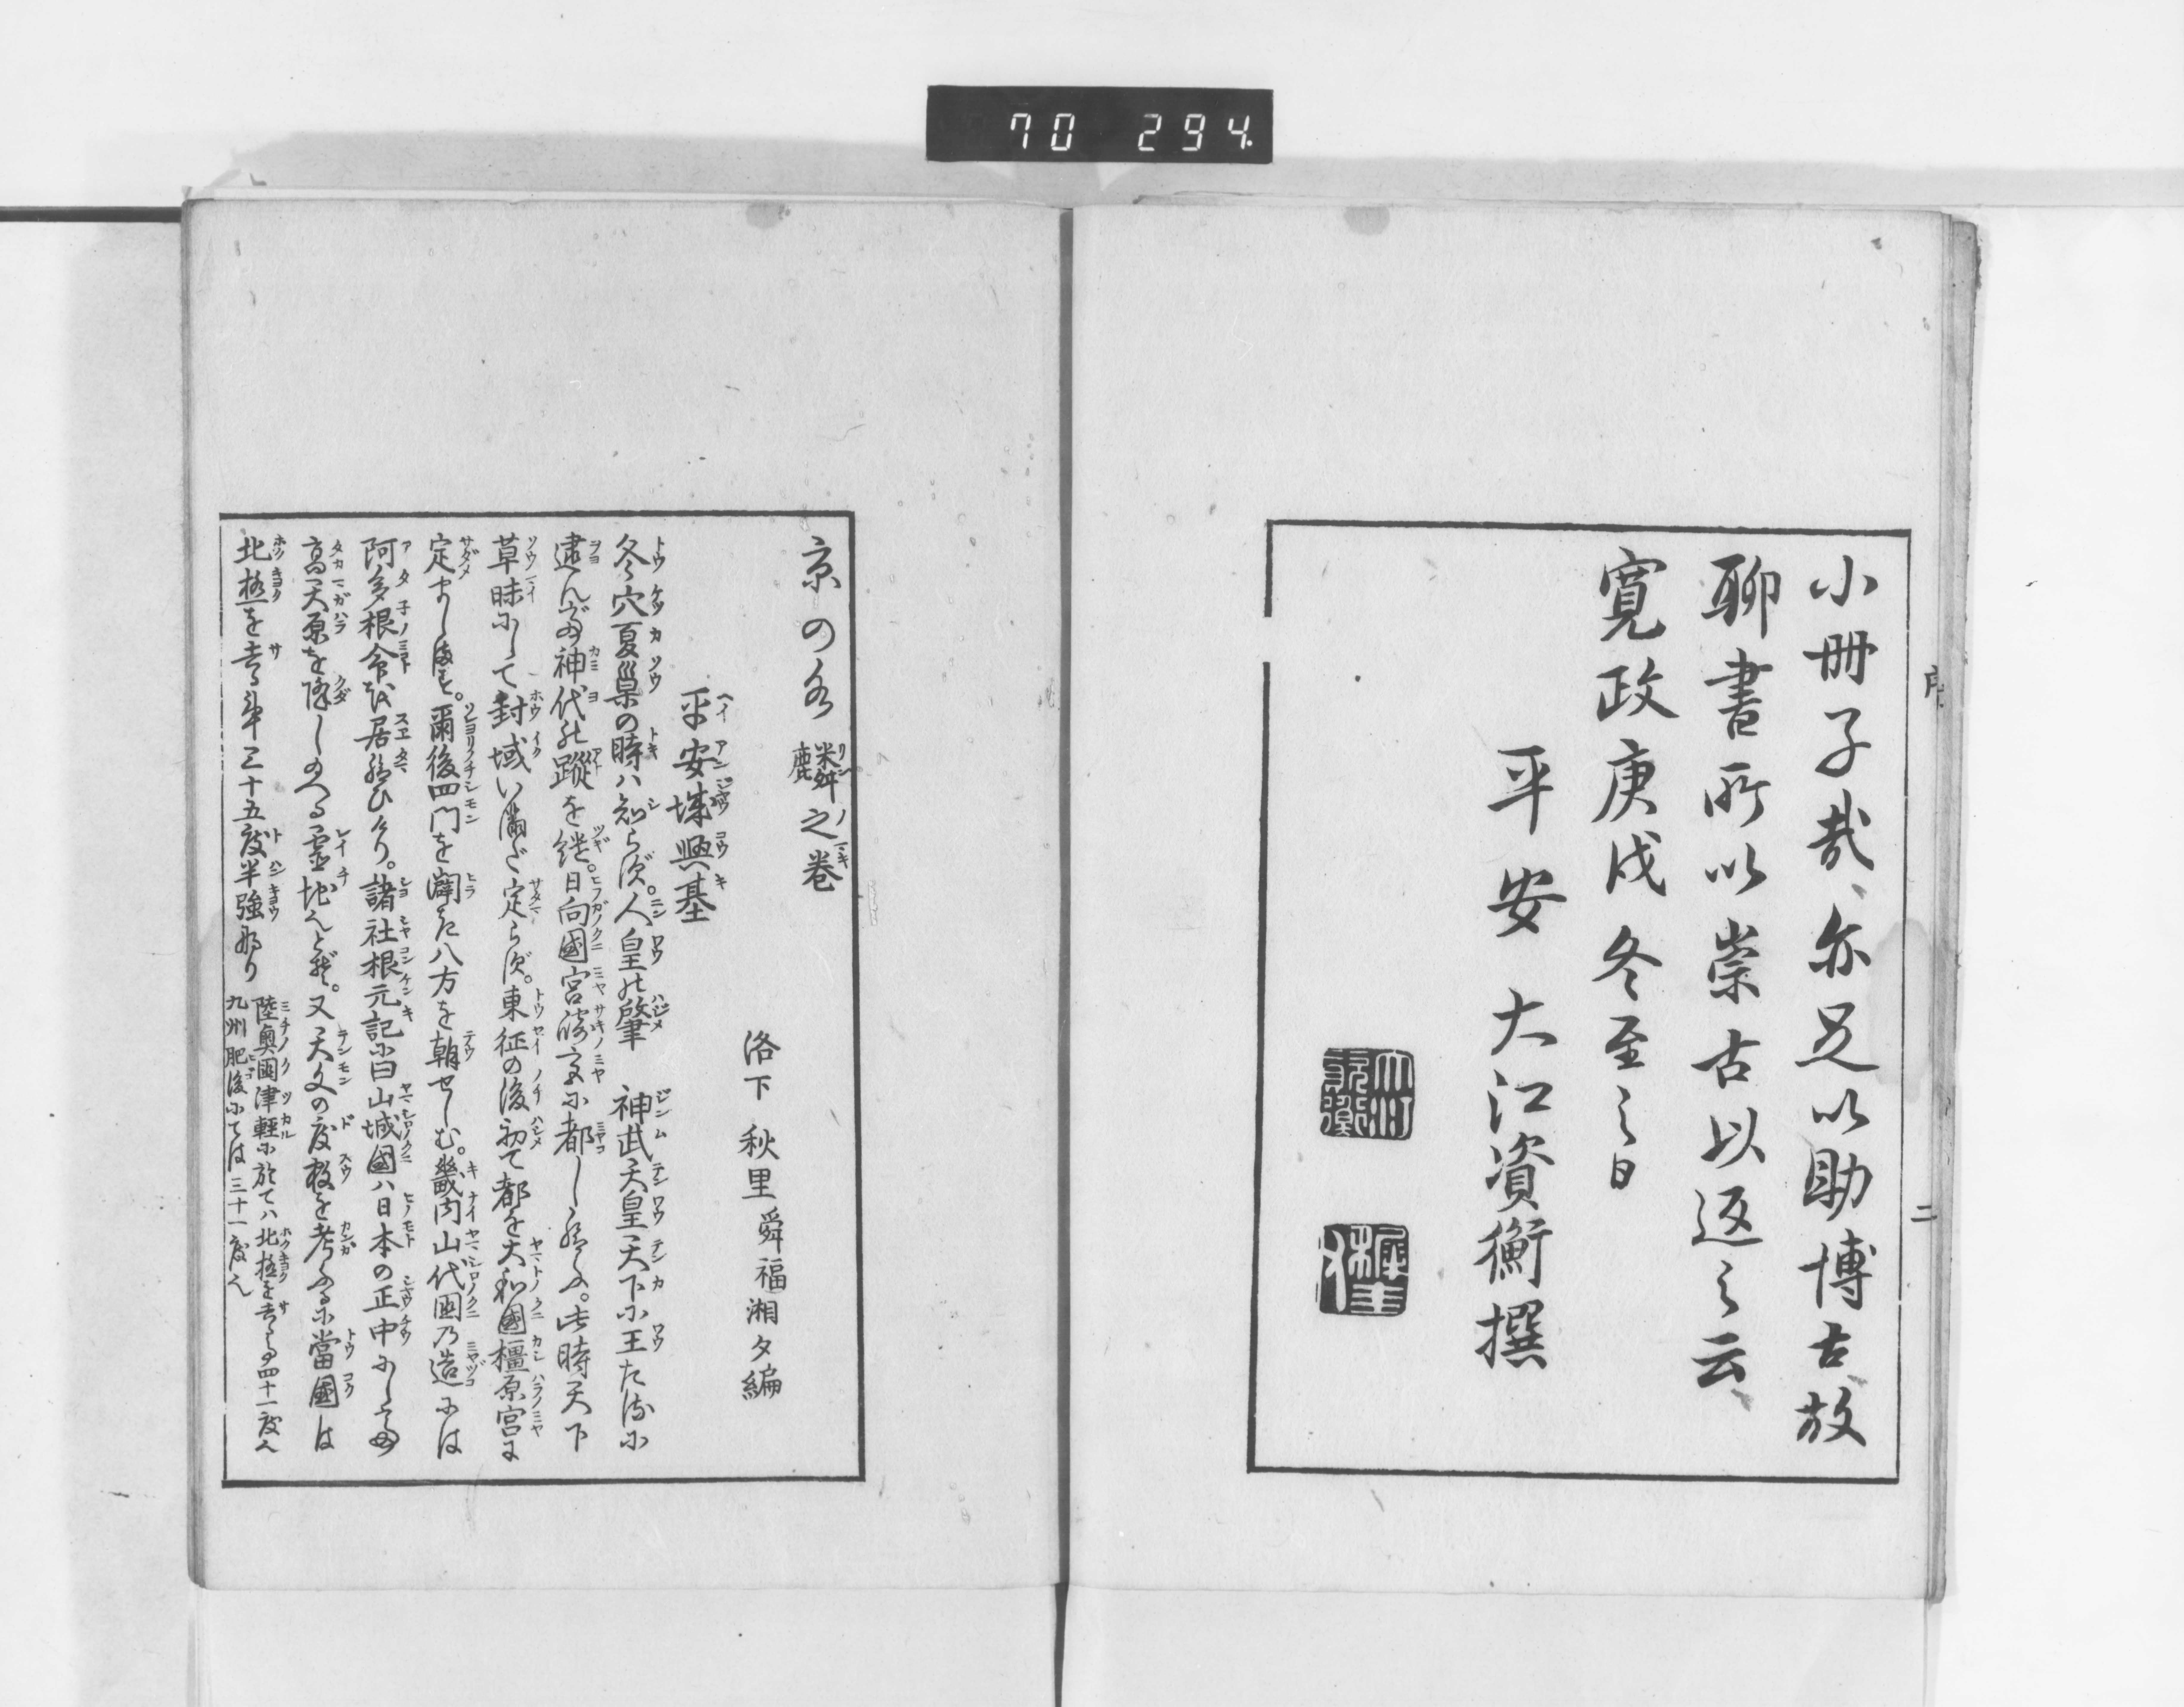 70 294
小冊子哉、亦足以助博古、故
聊書所以崇古以返之云、
寛政庚戌冬至之日
平安 大江資衡撰
序
二
京の水 麟之巻
洛下 秋里舜福湘夕編
平安城興基
冬穴夏巣の時ハ知らず。人皇の肇 神武天皇天下に王たるに
逮んで神代の蹤を継。日向國宮崎宮に都し給ふ。此時天下
草昧にして封域いまだ定らず。東征の後初て都を大和國橿原宮に
定まします。爾後四門を闢き八方を朝せしむ。畿内山代国乃造には
阿多根命を居給ひけり。諸社根元記に曰山城國ハ日本の正中にして
高天原を降しのへる霊地也とぞ。又天文の度数を考ふるに當國は
北極を去る事三十五度半強なり
陸奥國津軽に於てハ北極を去る事四十一度也
九州肥後にては三十一度也